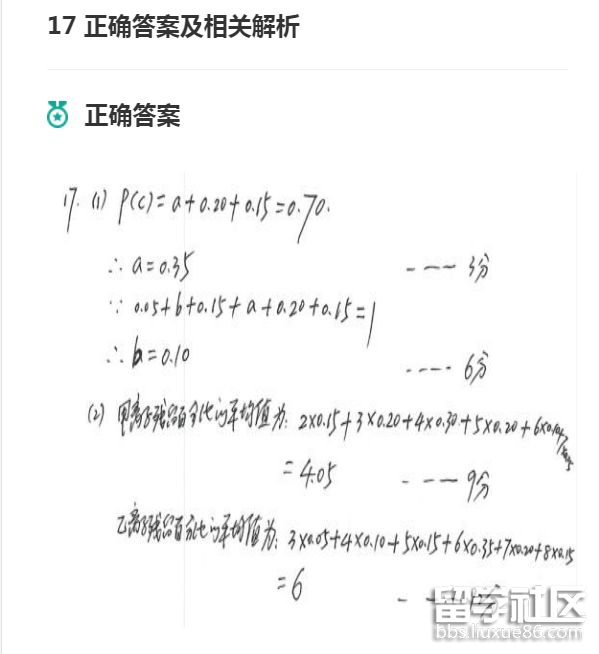 17 正确答案及相关解析
正确答案
17. (1) P(C)=a+0.20+0.15=0.70.
∴ a=0.35 ---- 3分
∵ 0.05+b+0.15+a+0.20+0.15=1
∴ b=0.10 ---- 6分
(2) 甲离子残留百分比的平均值为: 2×0.15+3×0.20+4×0.30+5×0.20+6×0.10+7×0.05
=4.05 ---- 9分
乙离子残留百分比的平均值为: 3×0.05+4×0.10+5×0.15+6×0.35+7×0.20+8×0.15
=6
留学社区
bbs.liuxue86.com